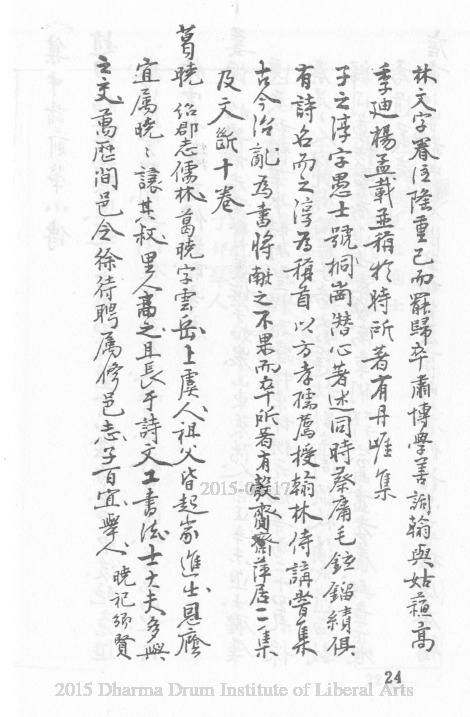 林文字眷注隆重已而罷歸卒肅博學善詞翰與姑蘇高
季迪楊孟載並稱於時所著有丹崖集
子之淳字愚士號桐崗潜心著述同時蔡庸毛鉉鎦績俱
有詩名而之淳為稱首以方孝孺薦授翰林侍講嘗集
古今治亂為書將獻之不果而卒所著有穀齋萍居二集
及文斷十卷
葛曉 紹郡志儒林葛曉字雲岳上虞人祖父皆起家進士恩廕
宜属曉曉讓其叔里人高之且長于詩文工書法士大夫多與
之交萬歷間邑令徐待聘属修邑志子百宜舉人 曉祀鄉賢
24
2015 Dharma Drum Institute of Liberal Arts